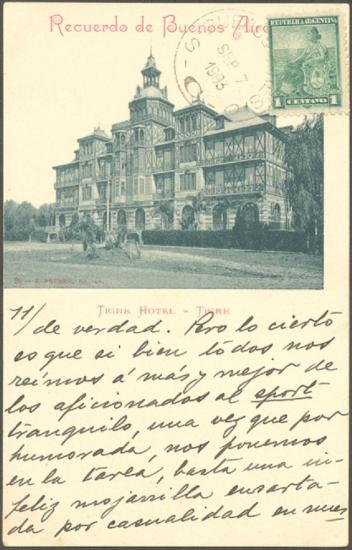 Recuerdo de Buenos Aire
REPUBLICA ARGENTINA
1 CENTAVO 1
SEP 7
TIGRE HOTEL – TIGRE
11/ de verdad. Pero lo cierto
es que si bien todos nos
reímos á más y mejor de
los aficionados al sport
tranquilo, una vez que por
humorada, nos ponemos
en la tarea, basta una in-
feliz mojarrilla ensarta-
da por casualidad en nues